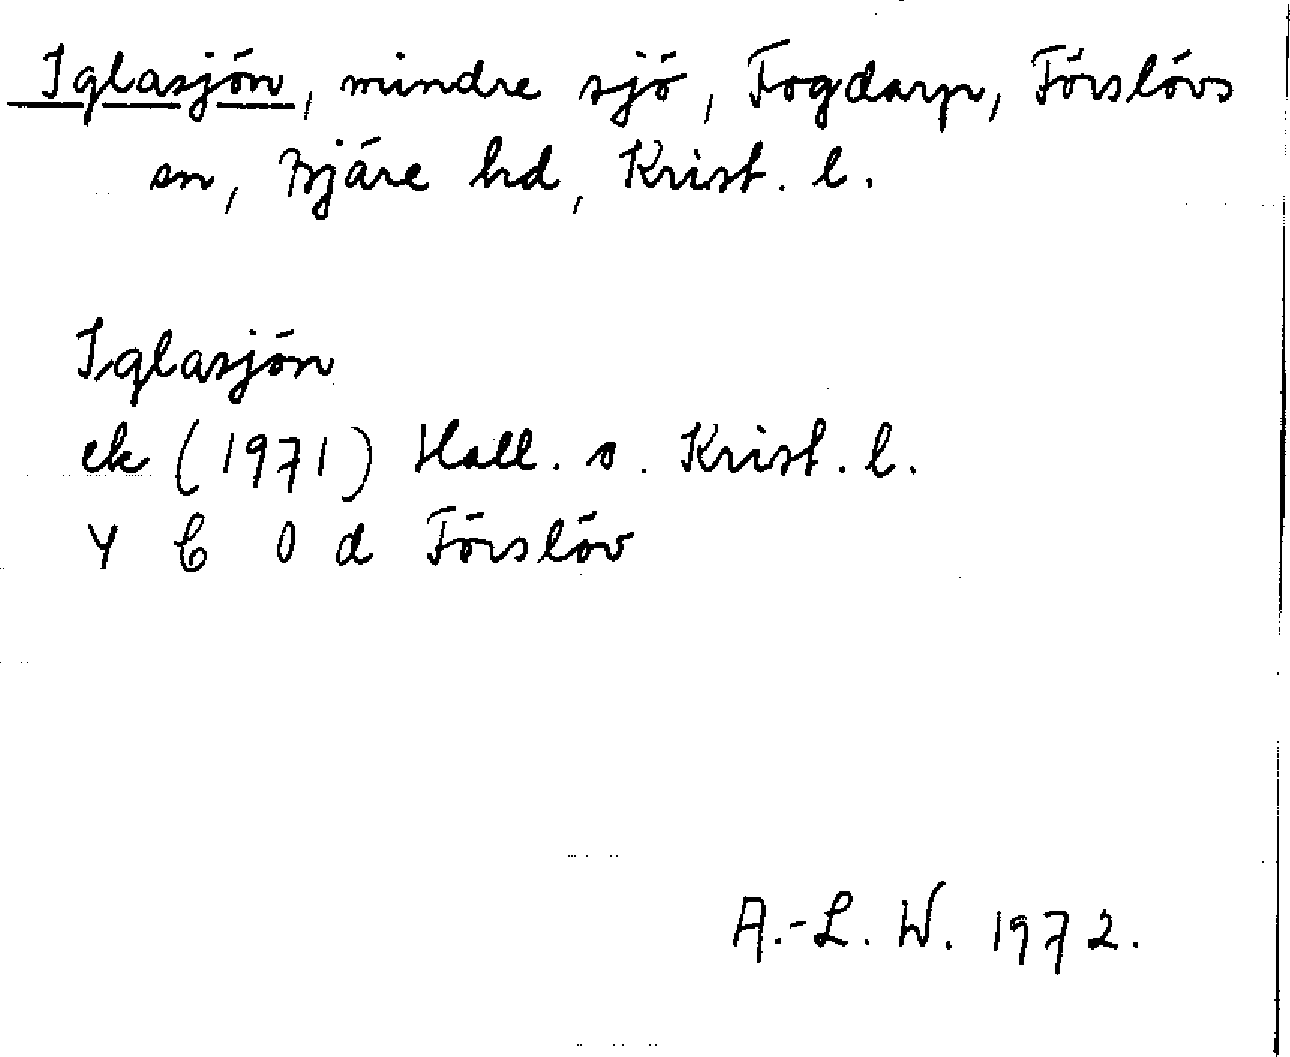 Iglasjön, mindre sjö, Fogdarp, Förslövs
sn, Bjäre hd, Krist. l.
Iglasjön
ek (1971) Hall. o. Krist. l.
4 C 0 d Förslöv
A.-L. W. 1972.